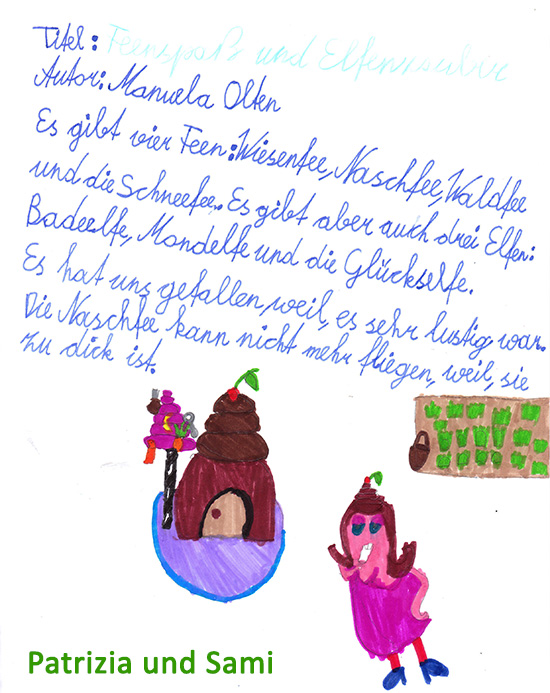 Titel: Feenspaß und Elfenzauber
Autor: Manuela Olten
Es gibt vier Feen: Wiesenfee, Naschfee, Waldfee
und die Schneefee. Es gibt aber auch drei Elfen:
Badeelfe, Mondelfe und die Glückselfe.
Es hat uns gefallen, weil, es sehr lustig war.
Die Naschfee kann nicht mehr fliegen, weil, sie
zu dick ist.
Patrizia und Sami